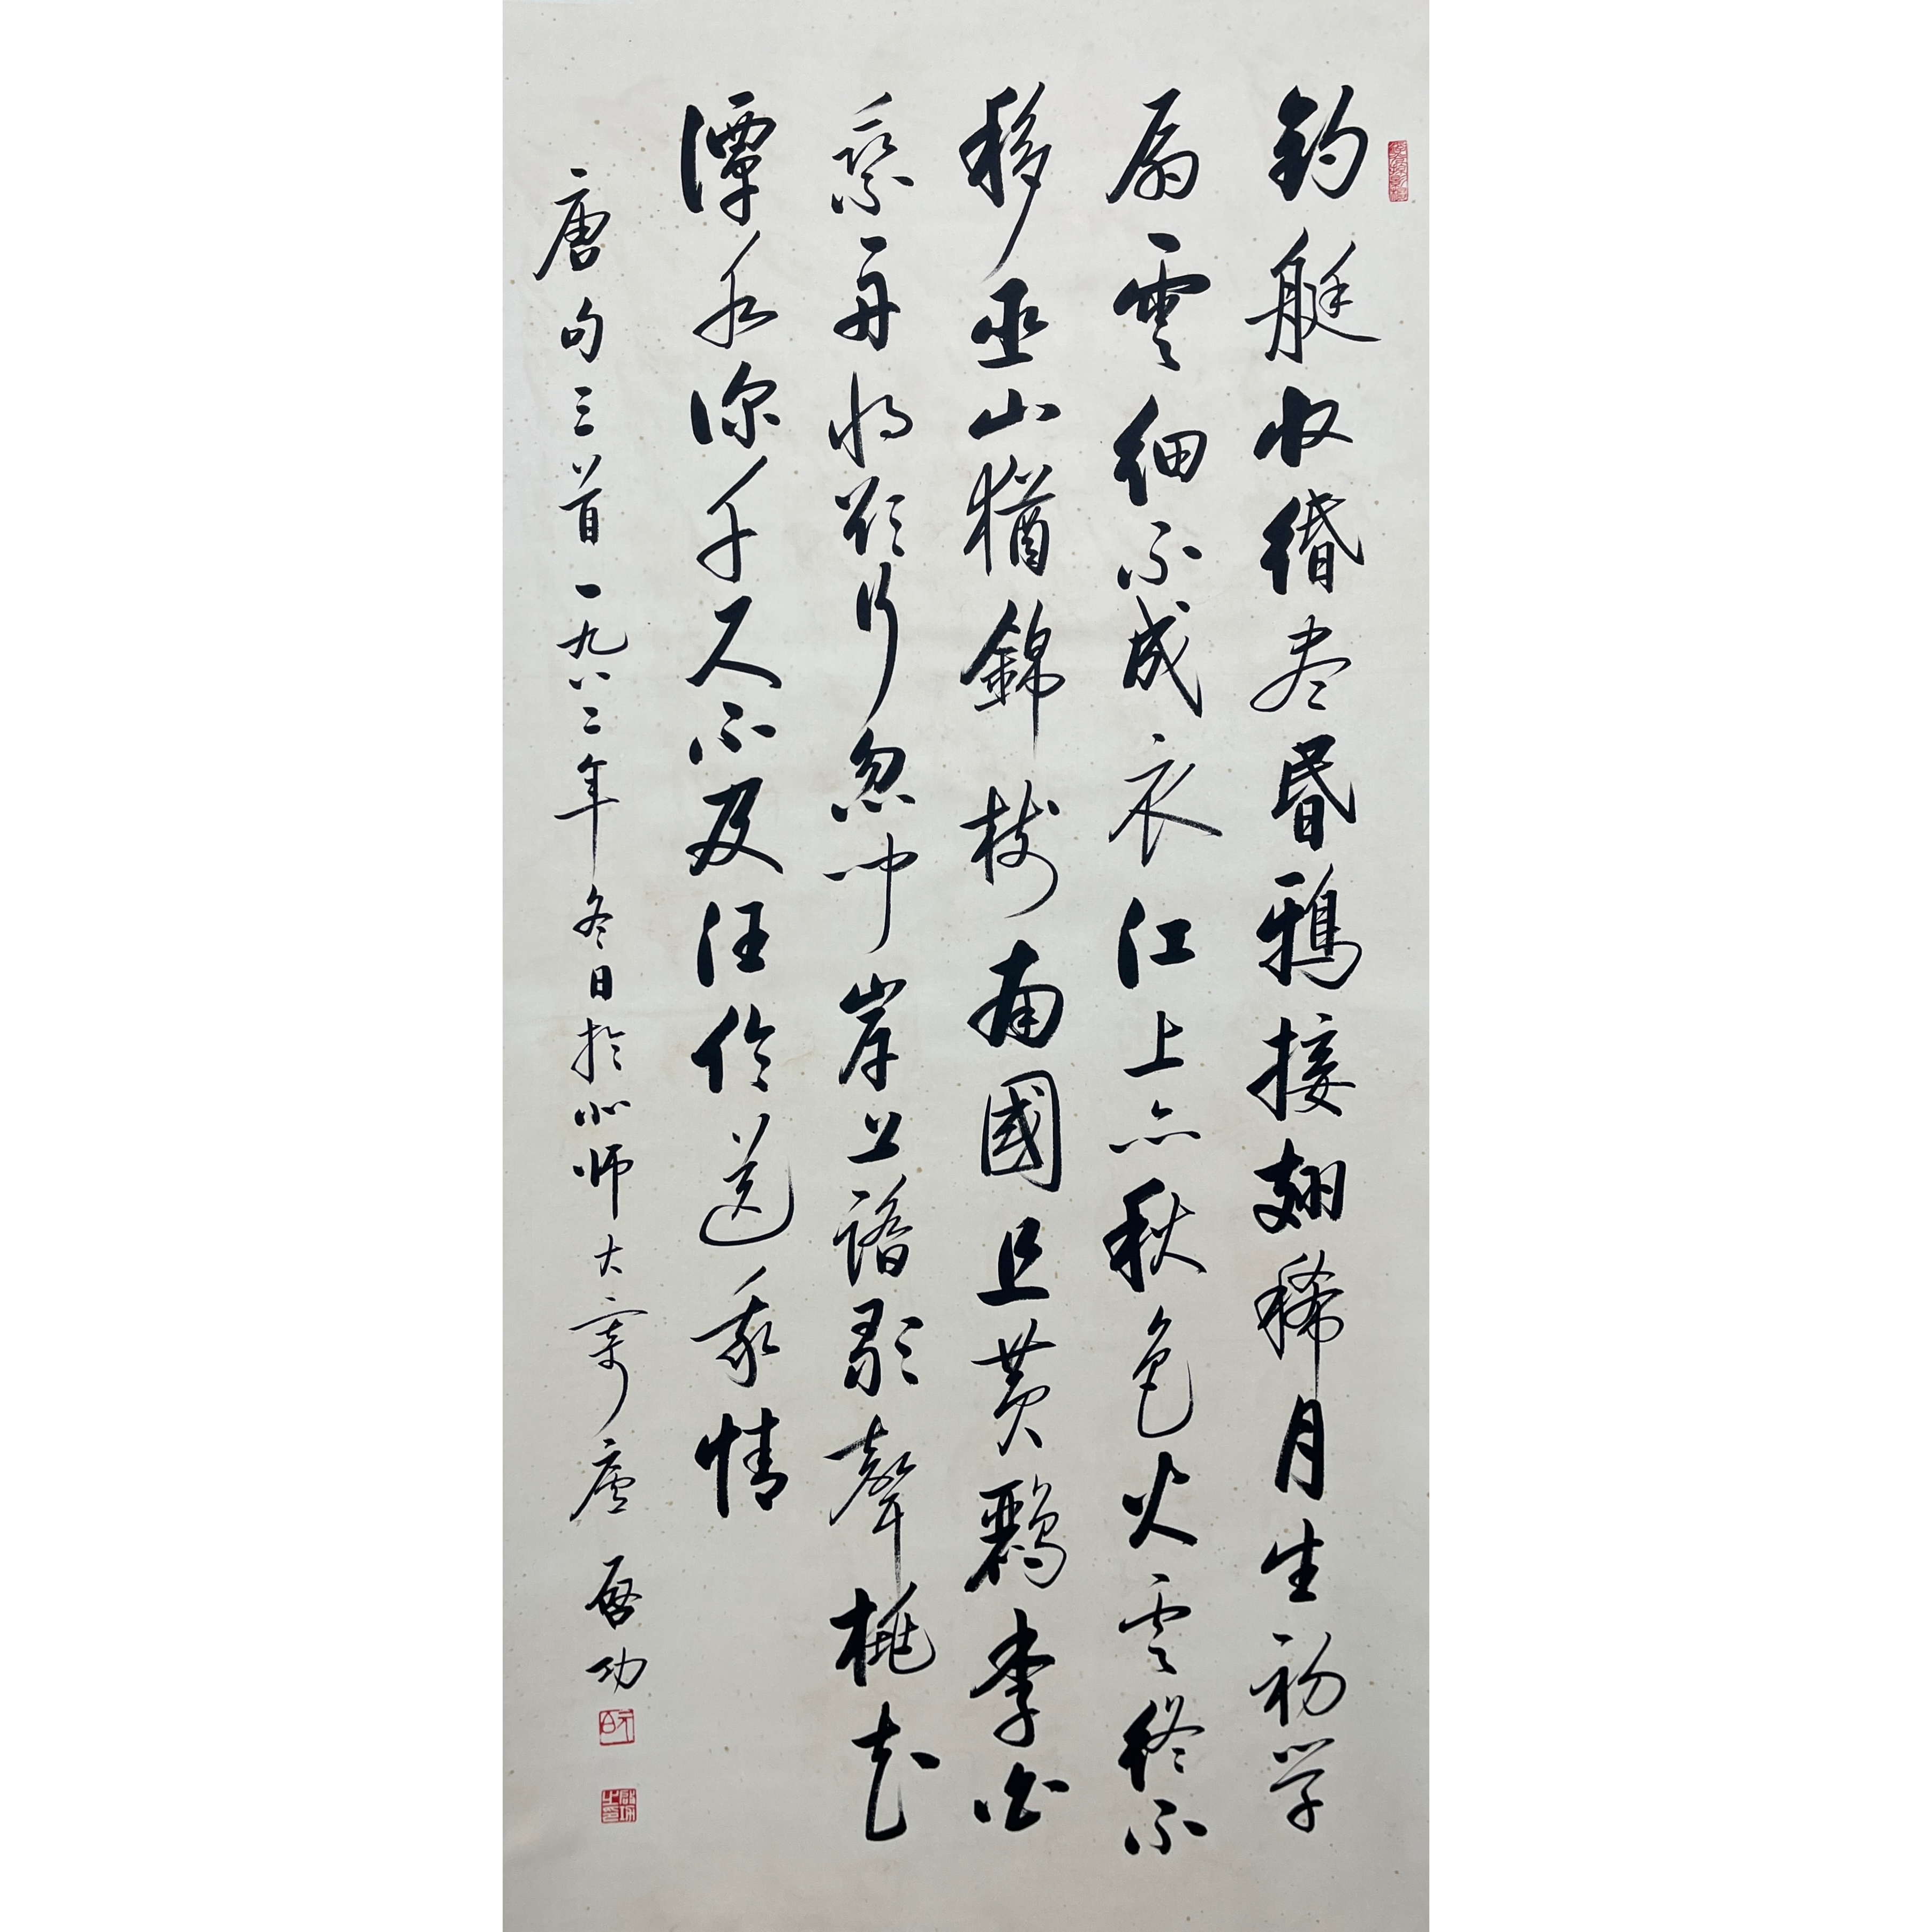 釣艇收緡尽昏鴉接翅稀月生初学
扇雲細不成衣江上亦秋色火雲終不
移巫山猶錦樹南國且黄鸝李白
乘舟将欲行忽聞岸上踏歌聲桃花
潭水深千尺不及汪倫送我情
唐句三首一九八二年冬日於北师大寄廬 啓功
元白
啓功之印